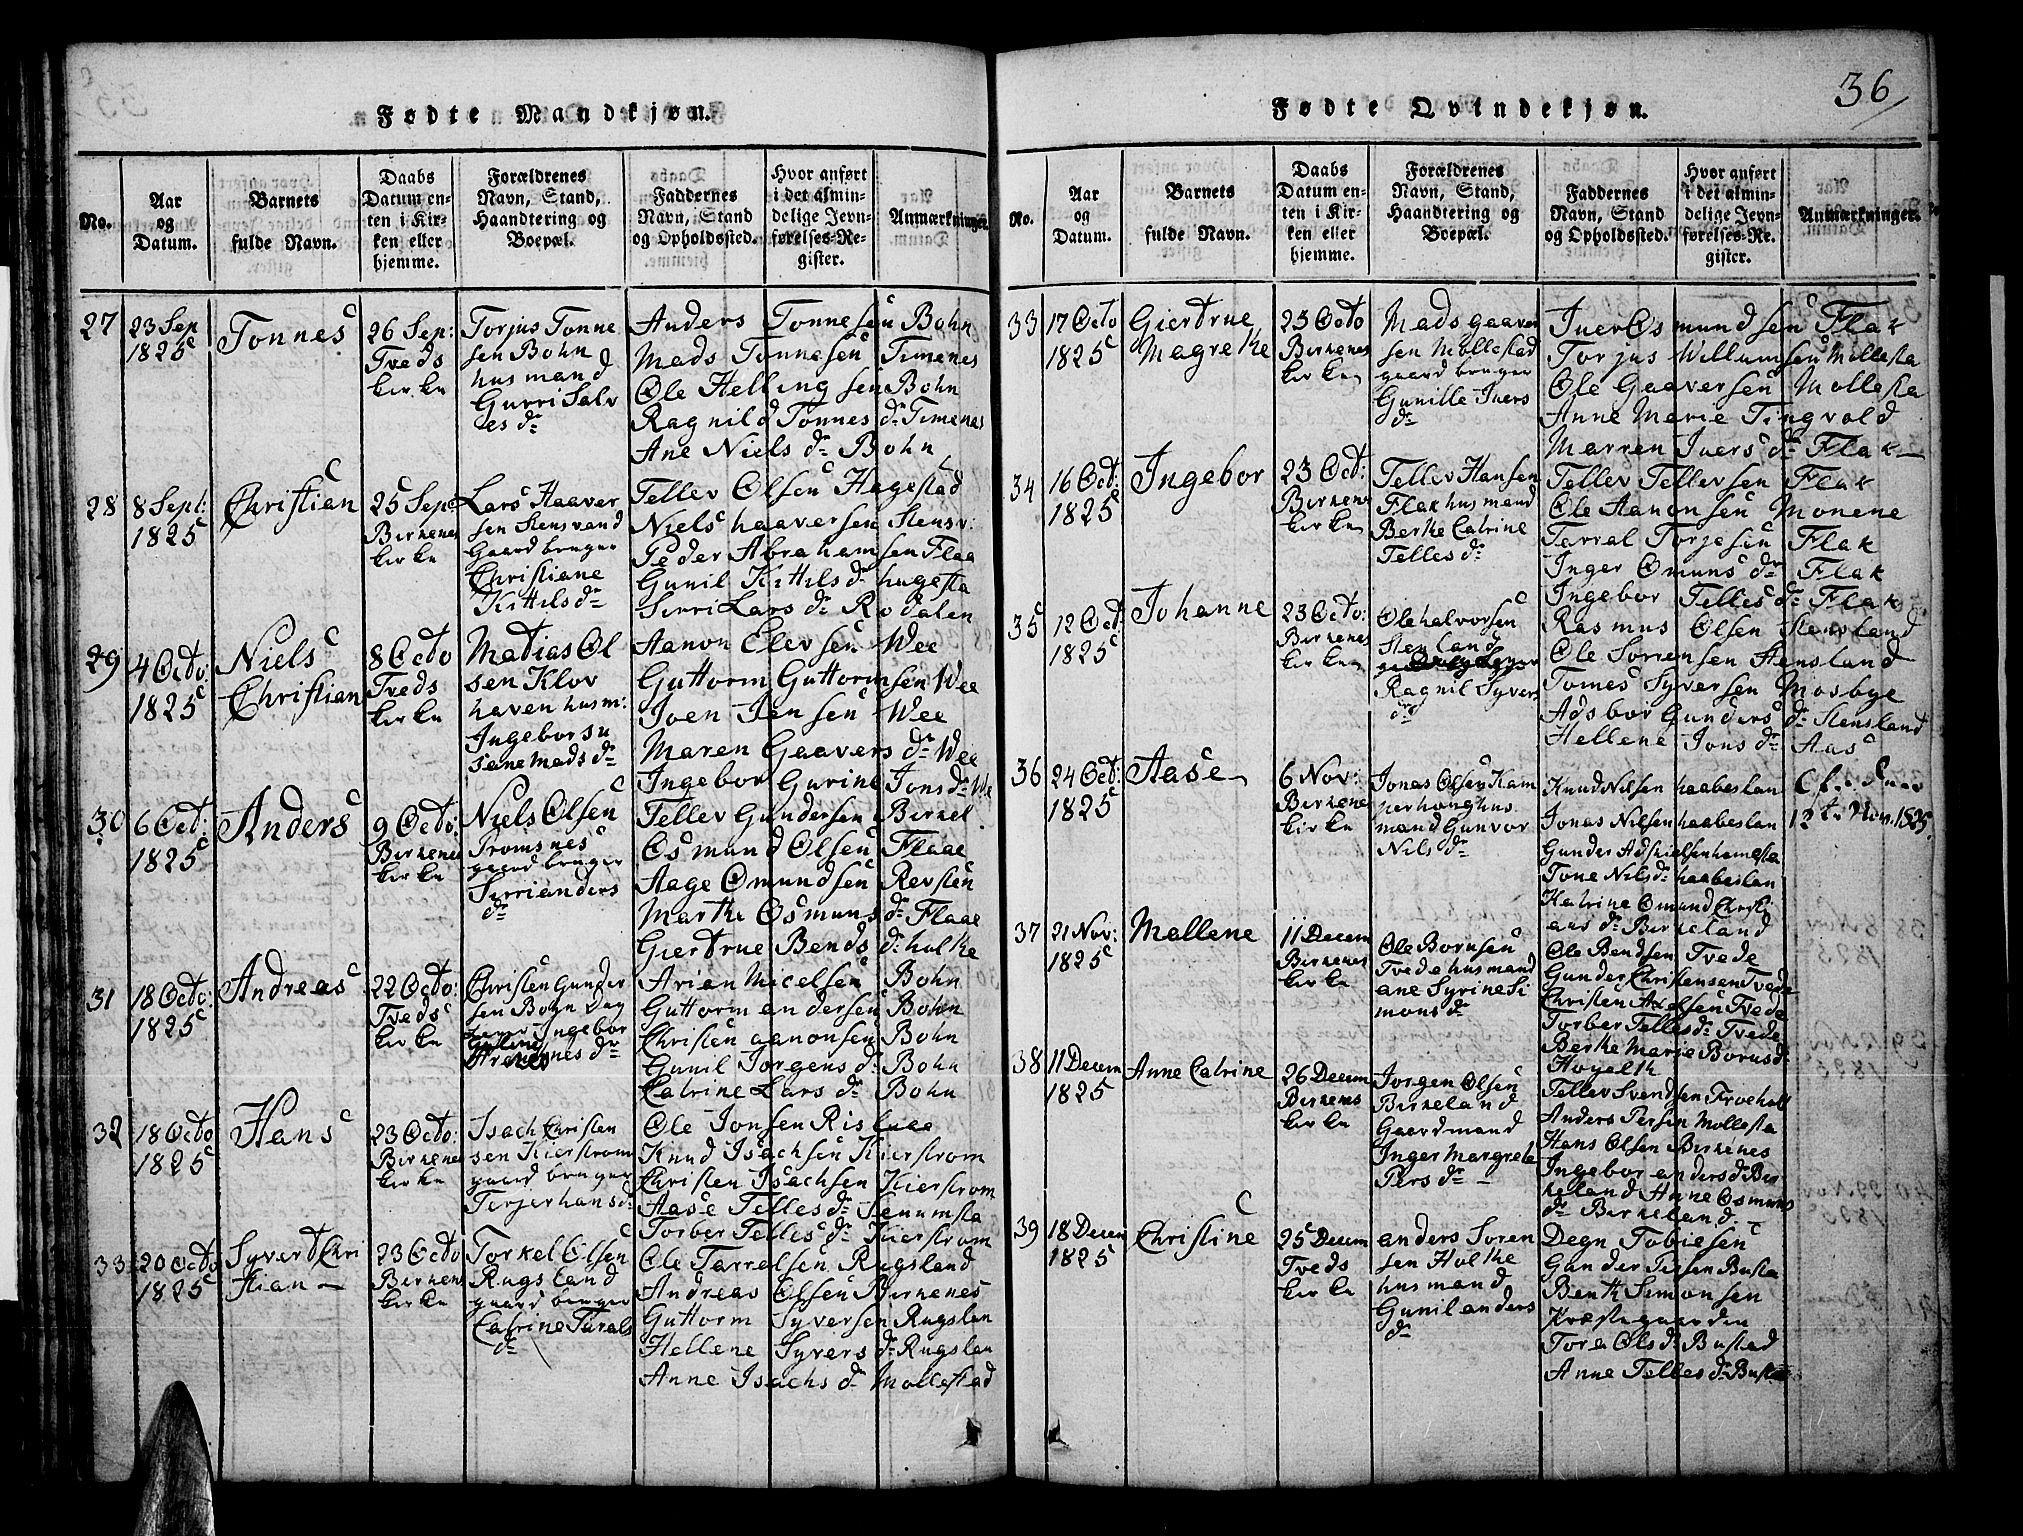 36
Fødte Mandkjøn.
No.
Aar
og
Datum.
Barnets
fulde Navn.
Daabs
Datum en-
ten i Kir-
ken eller
hjemme.
Forældrenes
Navn, Stand,
Haandtering og
Boepæl.
Faddernes
Navn, Stand
og Opholdssted.
Hvor anført
i det almin-
delige Jevn-
førelses-Re-
gister.
Anmærkninger.
27
23 Sep
1825
Tonnes
26 Sep:
Tveds
kirke
Torjus Tonne
sen Bohn
husmand
Gurri Salv
es dr
Anders Tonnesen Bohn
Mads Tonnesen Timenes
Ole Hellingsen Bohn
Ragnild Tonnes dr Timenes
Ane Niels dr Bohn
28
8 Sept:
1825
Christian
25 Sep:
Birkenes
kirke
Lars Haaver
sen Stensvand
Gaardbruger
Christiane
Kittils dr
Tellev Olsen Hagestad
Niels haaversen Stensv:
Peder Abrahamsen Flaa
Gunil Kittils dr hugesta
Sirri Lars dr Rodalen
29
4 Octo:
1825
Niels
Christian
8 Octo
Tveds
kirke
Matias Ol
sen Klov
haven husm:
Ingebor su
sane Mads dr
Aanon Elevsen Wee
Guttorm Guttormsen Wee
Joen Jensen Wee
Maren Gaavers dr Wee
Ingebor Gurine Jons dr We
30
6 Oct:
1825
Anders
9 Octo:
Birkenes
kirke
Niels Olsen
Tromsnes
gaardbruger
Sirrianders
dr
Tellev Gundersen Birkel
Osmund Olsen Flaae
Aage Omundsen Revsten
Marthe Osmuns dr Flaae
Giertrue Bends dr holthe
31
18 Octo:
1825
Andreas
22 Octo:
Tveds
kirke
Christen Gunder
sen Bohn Dag
Ingebor
Arian Micelsen Bohn
Guttorm andersen Bohn
Christen aanonsen Bohn
Gunil Jorgens dr Bohn
Catrine Lars dr Bohn
32
18 Octo
1825
Hans
23 Octo:
Birkenes
kirke
Isach Christen
sen Kierstrom
gaardbruger
Torjer hans d
Ole Jonsen Rislaae
Knud Isachsen Kierstrom
Christen Isachsen Kierstrom
Aase Telles dr Senumsta
Torber Telles dr Kierstrom
33
20 Octo
1825
Syvert Chri
stian
23 Octo
Birkenes
kirke
Torkel Olsen
Rugsland
gaardbruger
Catrine Tarals
dr
Ole Tarrelsen Rugsland
Andreas Olsen Birkenes
Guttorm Syversen Rugslan
Hellene Syvers dr Rugslan
Anne Isachs dr Mollestad
Fødte Qvindekjøn.
No.
Aar
og
Datum.
Barnets
fulde Navn.
Daabs
Datum en-
ten i Kir-
ken eller
hjemme.
Forældrenes
Navn, Stand,
Haandtering og
Boepæl.
Faddernes
Navn, Stand
og Opholdssted.
Hvor anført
i det almin-
delige Jevn-
førelses-Re-
gister.
Anmærkninger.
33
17 Octo
1825
Giertrue
Magrethe
25 Octo
Birkenes
kirken
Mads gaaver
sen Mollestad
gaardbruger
Gunille Juers
dr
Juer Osmundsen Flak
Torjus Willumsen Mollesta
Ole Gaaversen Mollesta
Anne Marie Tingvold
Marren Juers dr Flak
34
16 Oct:
1825
Ingebor
23 Oct:
Birkenes
kirken
Tellev Hansen
Flak husmand
Berthe Catrine
Telles dr
Tellev Tellevsen Flak
Ole Aanonsen Monene
Tarral Torjesen Flak
Inger Omuns dr Flak
Ingebor Telles dr Flak
35
12 Oct:
1825
Johanne
23 Octo:
Birkenes
kirken
Ole halvorsen
Stenland
Ragnil Syvers
dr
Rasmus Olsen Stensland
Ole Sorensen Stensland
Tomes Syversen Mosbye
Adsbor Gunders dr Stensland
Hellene Jons dr Aas
36
24 Oct:
1825
Aase
6 Nov:
Birkene
kirke
Jonas Olsen Kam
perhoug hus
mand Gunvor
Nils dr
Knud Nilsen haabeslan
Jonas Nilsen haabeslan
Gunder Adskielsen hamesta
Tone Nils dr haabeslan
Katrine Omund Christi
ans dr Birkeland
12te Nov. 1825.
37
21 Nov:
1825
Mallene
11 Decem
Birkenes
kirke
Ole Bornsen
Tvede husmand
ane Syrine Si
mons dr
Ole Bendsen Tvede
Gunder Christensen Tvede
Christen Axelsen Tvede
Torber Telles dr Tvede
Berthe Marie Boruns dr
38
11 Decem
1825
Anne Catrine
26 Decem
Birkenes
kirke
Jorgen Olsen
Birkeland
Gaardmand
Inger Margrete
Pers dr
Tellev Svendsen
Anders Tersen Mollesta
Hans Olsen Birkenes
Ingebor anders dr Bir
keland Anne Osmuns
dr Birkeland
39
18 Decem
1825
Christine
25 Decem
Tveds
kirke
anders Soren
sen Holthe
husmand
Gunil anders
dr
Degn Tobiesen
Gunder Tersen Busta
Benth Simonsen
Præstegaarden
Tore Ols dr Bustad
Anne Telles dr Busta